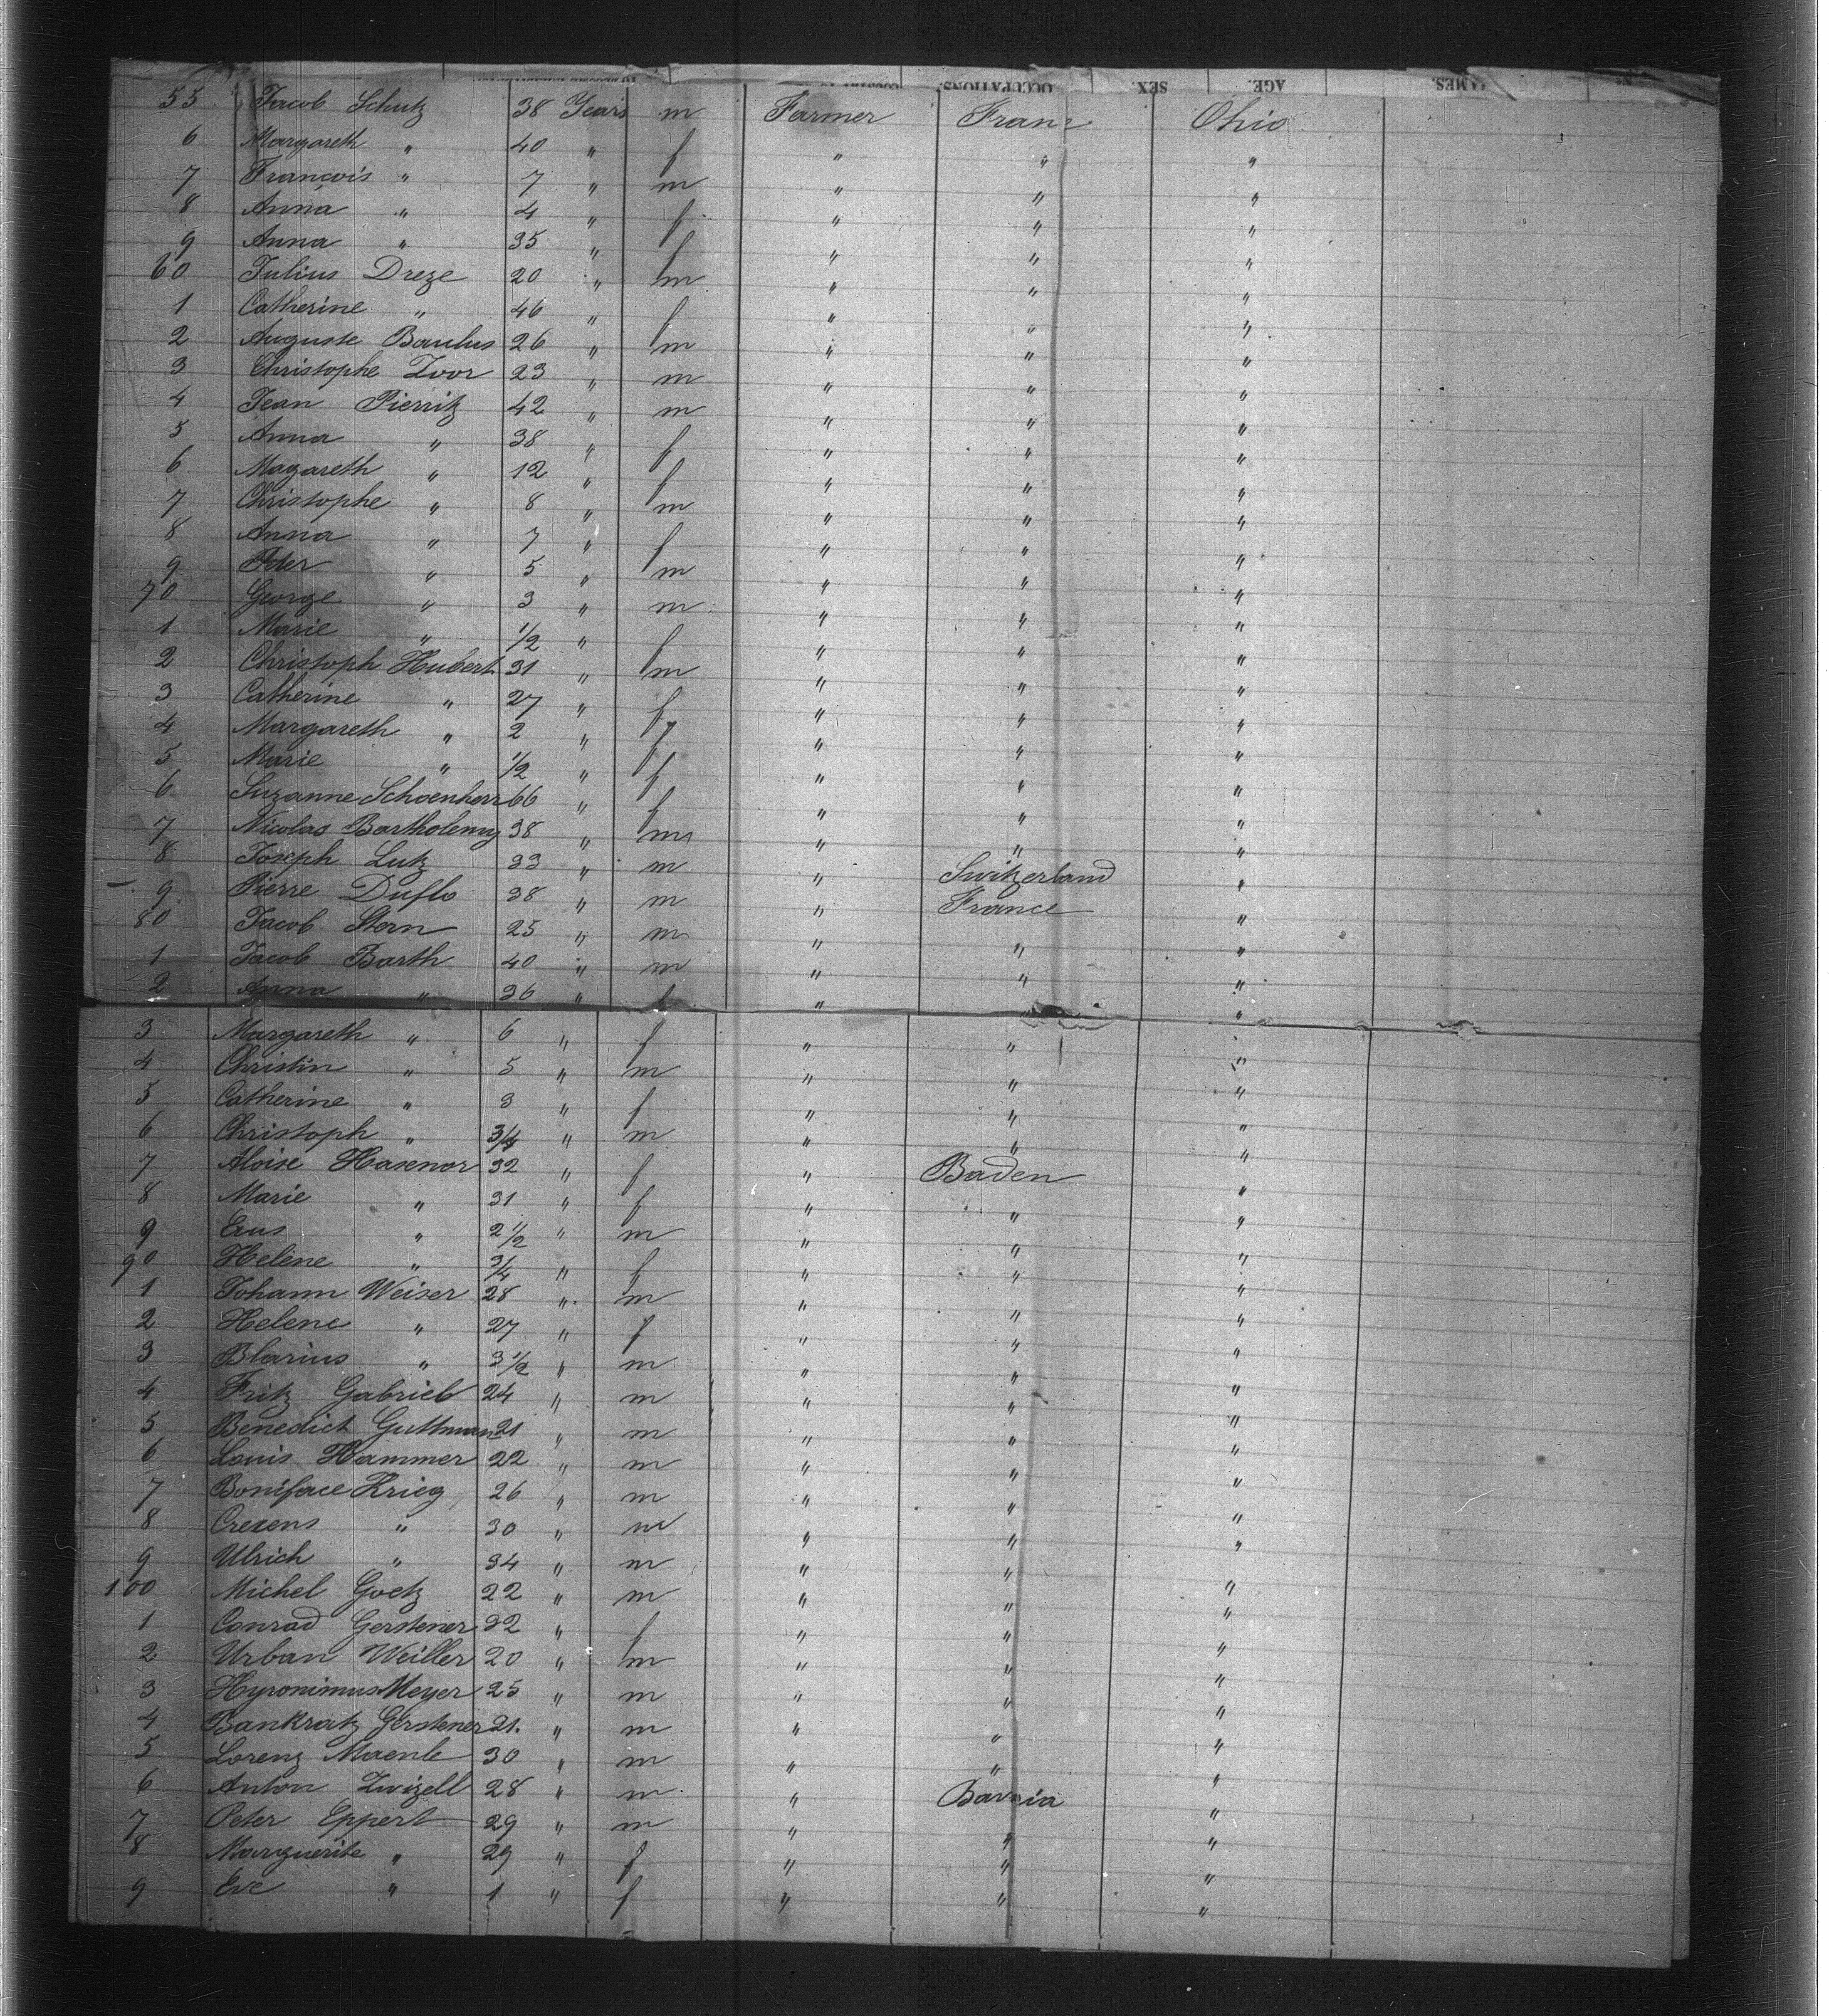 OCCUPATIONS. SEX. AGE.
55 Jacob Schutz 38 Years m Farmer Ohio
6 Margareth " 40 " f " " "
7 François " 7 " m " " "
8 Anna " 4 " f " " "
9 Anna " 35 " f " " "
60 Julius Dreze 20 " m " " "
1 Catherine " 46 " f " " "
2 Auguste Baulus 26 " m " " "
3 Christophe Zoor 23 " m " " "
4 Jean Pierritz 42 " m " " "
5 Anna " 38 " f " " "
6 Magareth " 12 " f " " "
7 Christophe " 8 " m " " "
8 Anna " 7 " f " " "
9 Peter " 5 " m " " "
70 George " 3 " m " " "
1 Marie " 1/2 " f " " "
2 Christoph Hubert 31 " m " " "
3 Catherine " 27 " f " " "
4 Margareth " 2 " f " " "
5 Marie " 1/2 " f " " "
6 Suzanne Schoenherr 66 " f " " "
7 Nicolas Bartholemy 38 " m " " "
8 Joseph Lutz 33 " m " Switzerland "
9 Pierre Duflo 38 " m " France "
80 Jacob Stern 25 " m " " "
1 Jacob Barth 40 " m " " "
2 Anna " 36 " f " "
3 Margareth " 6 " f " " "
4 Christin " 5 " m " " "
5 Catherine " 3 " f " " "
6 Christoph " 3/4 " m " " "
7 Aloise Hasenor 32 " f " Baden "
8 Marie " 31 " f " " "
9 Erus " 2 1/2 " m " " "
90 Helene " 3/4 " f " " "
1 Johann Weiser 28 " m " " "
2 Helene " 27 " f " " "
3 Blarius " 3 1/2 " m " " "
4 Fritz Gabrieb 24 " m " " "
5 Benedict Guttman 21 " m " " "
6 Louis Hammer 22 " m " " "
7 Boniface Krieg 26 " m " " "
8 Crezens " 30 " m " " "
9 Ulrich " 34 " m " " "
100 Michel Goetz 22 " m " " "
1 Conrad Gerstener 32 " f " " "
2 Urban Weiller 20 " m " " "
3 Hyronimus Meyer 25 " m " " "
4 Bankratz Gerstener 21. " m " " "
5 Lorenz Maenle 30 " m " " "
6 Anton Zwizell 28 " m " Bavaria "
7 Peter Eppert 29 " m " " "
8 Marguerite " 29 " f " " "
9 Eve " 1 " f " " "